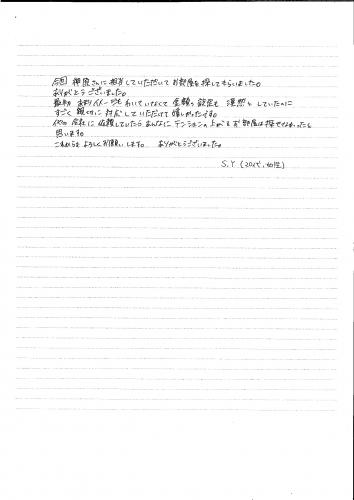 今回 柳原さんに担当していただいてお部屋を探してもらいました。
ありがとうございました。
最初 あまりイメージもわいていなくて 金額の設定も 漠然としていたのに
すごく 親切に 対応していただけて 嬉しかったです。
他の 会社に 依頼していたら あんなに テンションの上がる お部屋は探せなかったと
思います。
これからも よろしくお願いします。 ありがとうございました。
S.Y (20代、女性)